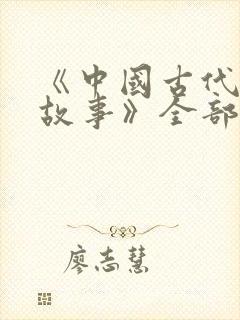 《中國古代
故事》全部
廖志慧